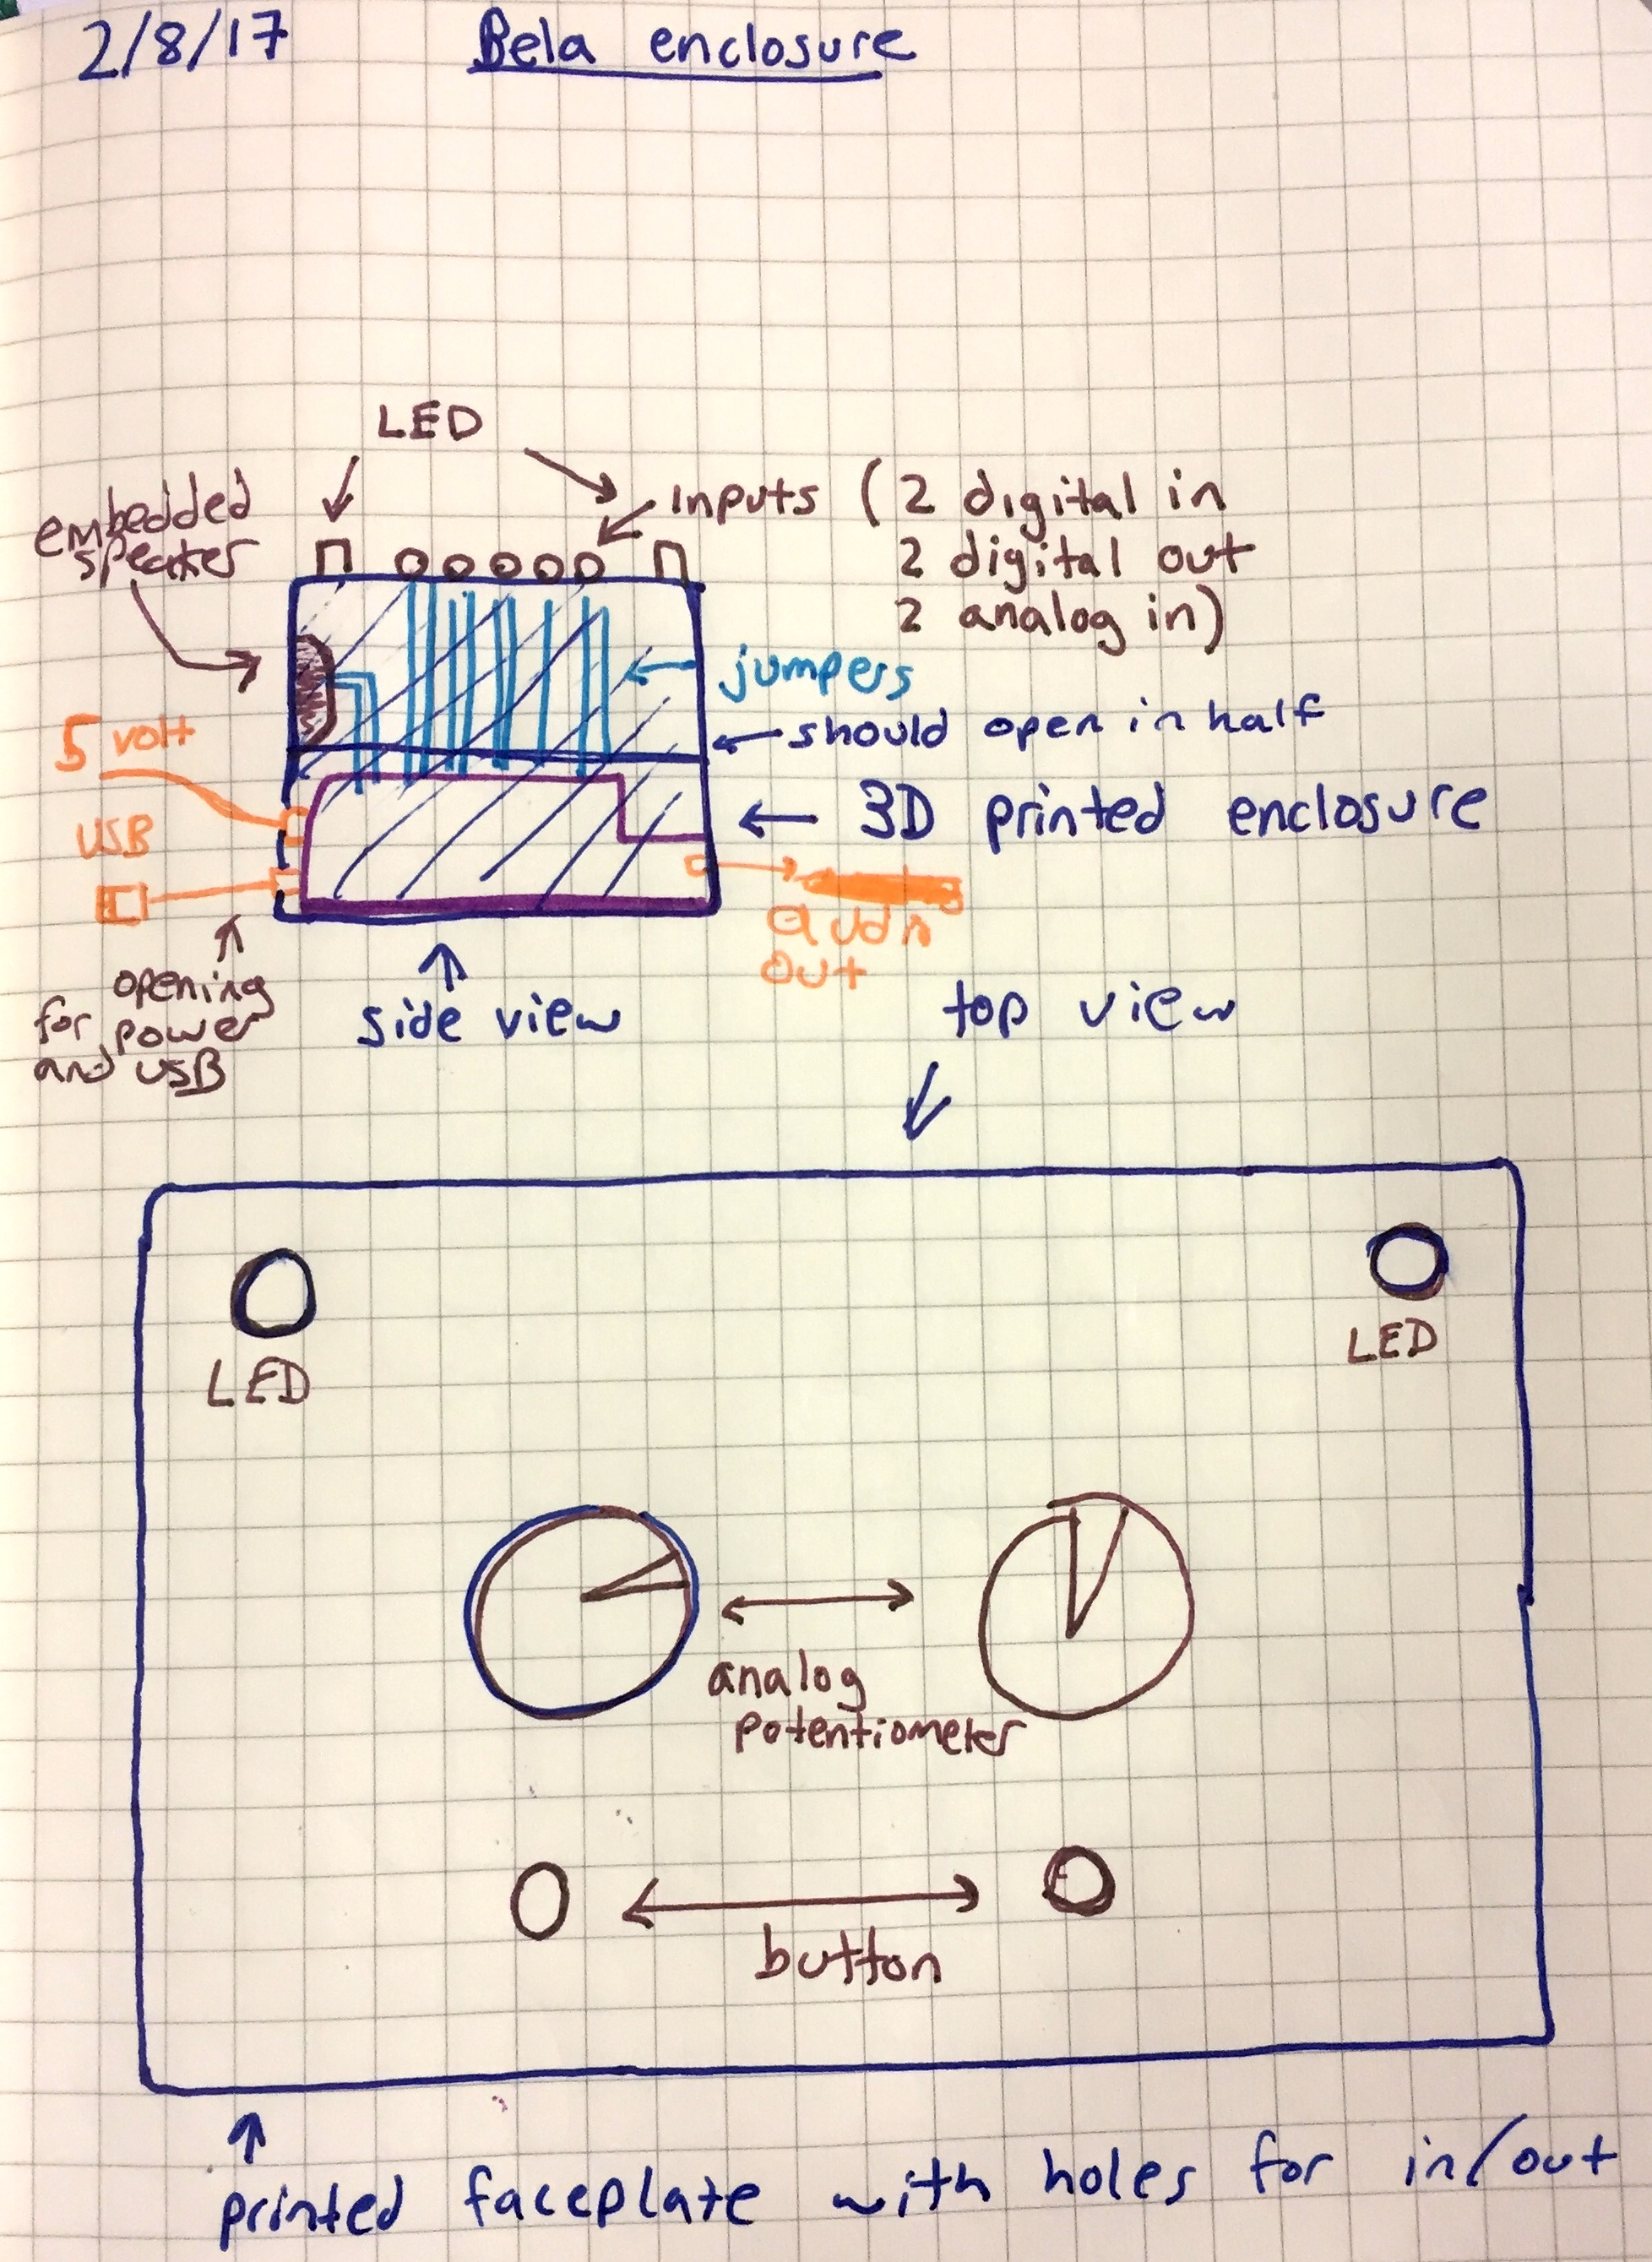 2/8/17 Bela enclosure
LED
embedded
speaker
Inputs (2 digital in
2 digital out
2 analog in)
jumpers
should open in half
5 volt
3D printed enclosure
USB
audio
out
opening
for power
and USB
side view
top view
LED
LED
analog
potentiometer
button
printed faceplate with holes for in/out